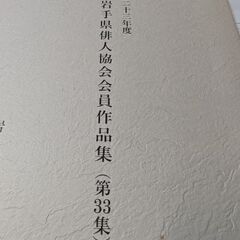 二十三年度
岩手県俳人協会会員作品集(第33集)